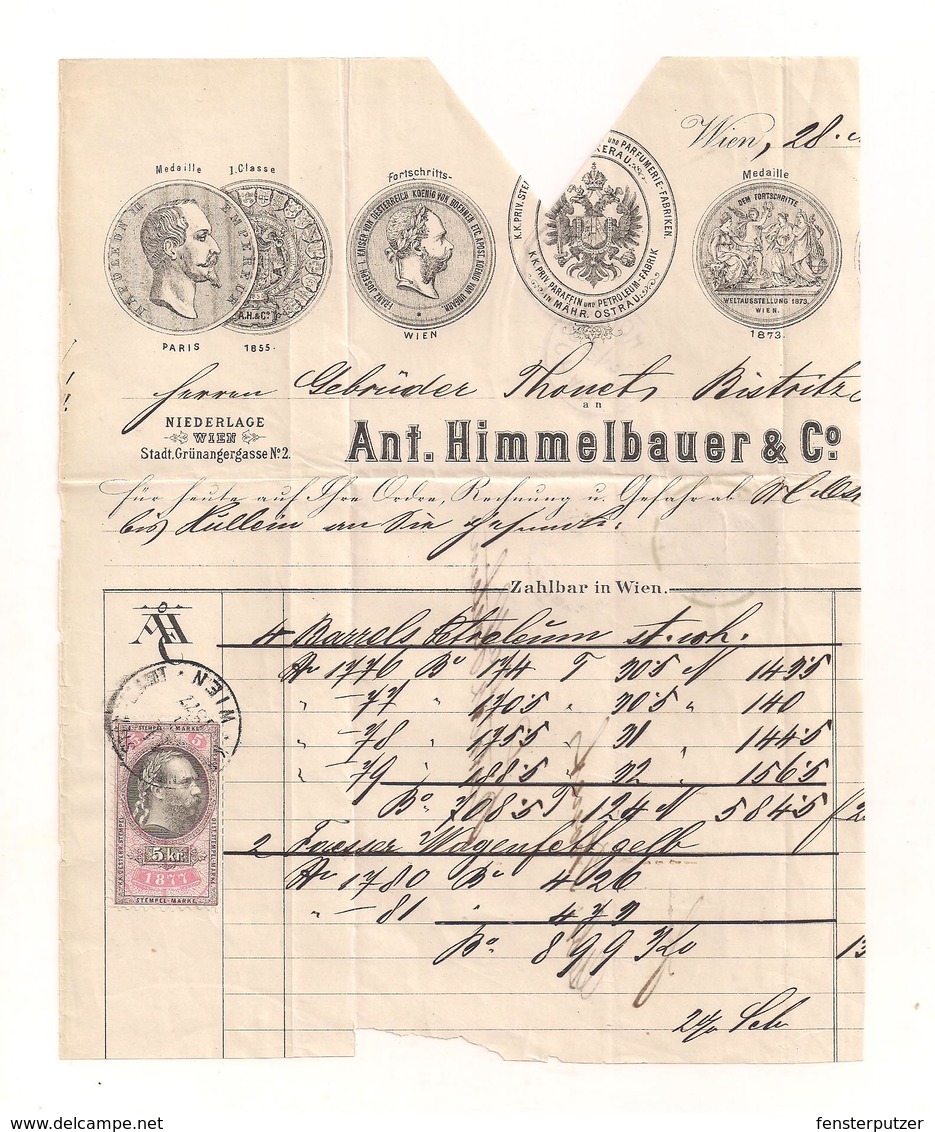 Wien, 28.
Medaille I. Classe
NAPOLEON III EMPEREUR
A.H.& Co.
PARIS 1855.
Fortschritts-
FRANZ JOSEPH I. KAISER VON OESTERREICH KOENIG VON BOEHMEN ETC. APOST. KOENIG VON UNGARN
WIEN
K.K. PRIV. STE
und PARFUMERIE-FABRIKEN.
KERAU.
K.K. PRIV. PARAFFIN und PETROLEUM-FABRIK
IN MÄHR. OSTRAU.
Medaille
DEM FORTSCHRITTE
WELTAUSSTELLUNG 1873.
WIEN.
1873.
Herren Gebrüder Thonet, Bistritz
an
NIEDERLAGE
WIEN
Stadt, Grünangergasse No. 2.
Ant. Himmelbauer & Co.
Für heute auf Ihre Ordre, Rechnung u. Gefahr ab
bis Hullein an Sie gesandte:
Zahlbar in Wien.
AH
4 Barrels Petroleum
No 1776 Bo 174 T 30·5 N 143·5
" —77 " 170·5 " 30·5 " 140
" —78 " 175·5 " 31 " 144·5
—79 " 188·5 " 32 " 156·5
Bo 708·5 T 124 N 584·5 f 2
2 Faesser Wagenfett gelb
No 1780 Bo 426
" —81 " 473
Bo 899 Ko 13
2%
WIEN
STEMPEL-MARKE
5 5
K.K. OESTERR. STEMPEL
5 kr.
1877
STEMPEL-MARKE
www.delcampe.net
fensterputzer